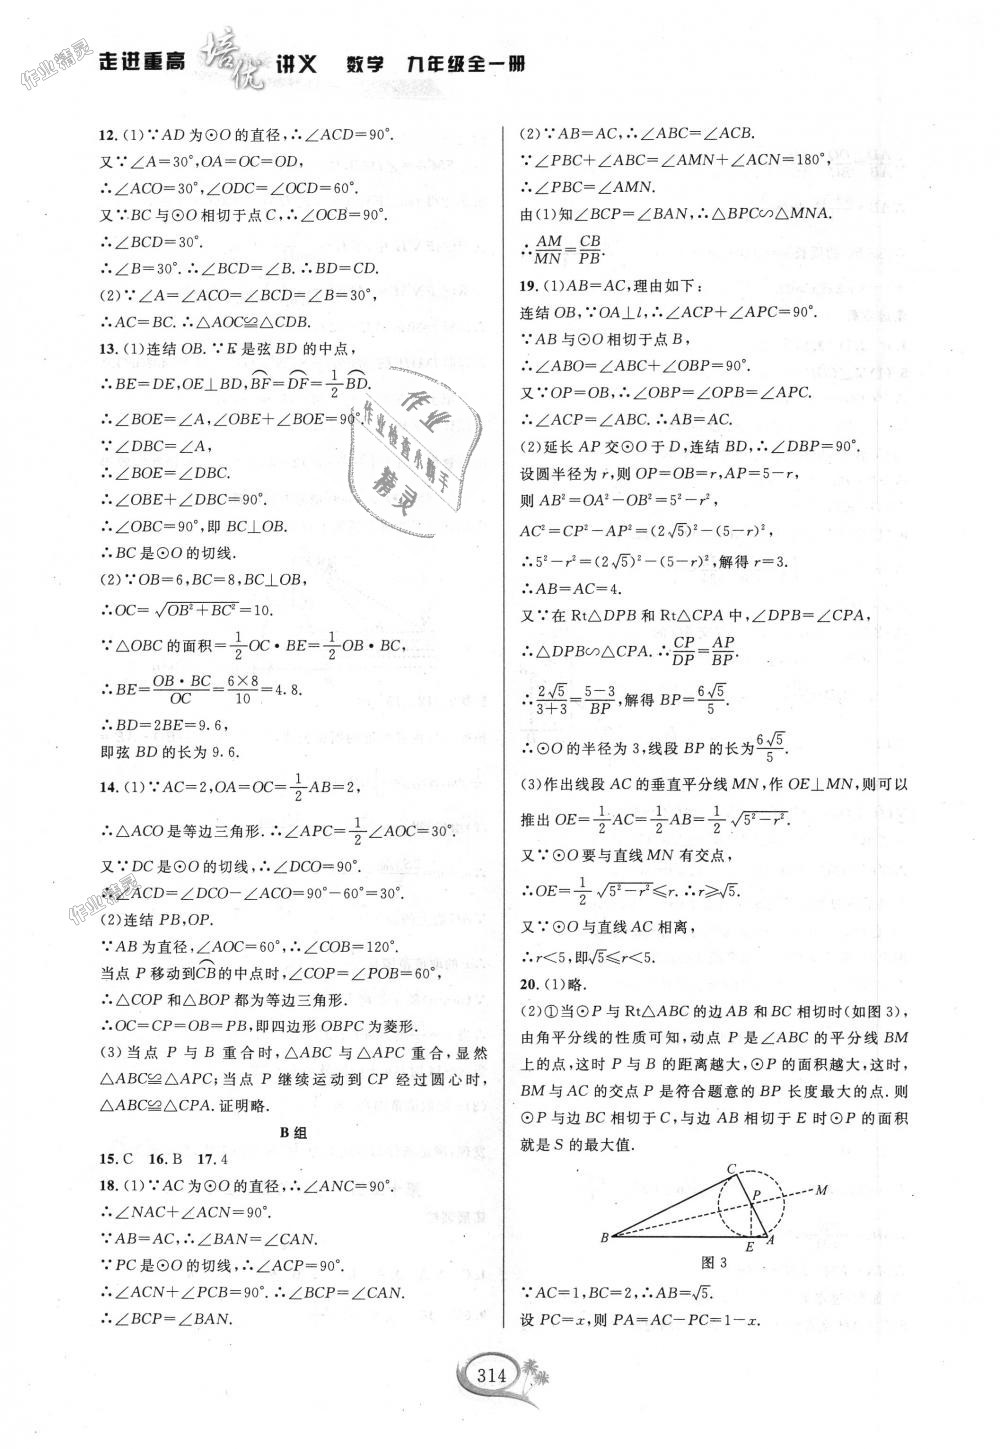 走进重高 培优 讲义 数学 九年级全一册
作业精灵
12.(1)∵AD为⊙O的直径,∴∠ACD=90°.
又∵∠A=30°,OA=OC=OD,
∴∠ACO=30°,∠ODC=∠OCD=60°.
又∵BC与⊙O相切于点C,∴∠OCB=90°.
∴∠BCD=30°.
∴∠B=30°.∴∠BCD=∠B.∴BD=CD.
(2)∵∠A=∠ACO=∠BCD=∠B=30°,
∴AC=BC.∴△AOC≌△CDB.
13.(1)连结OB.∵E是弦BD的中点,
∴BE=DE,OE⊥BD,⌒BF=⌒DF=1/2⌒BD.
∴∠BOE=∠A,∠OBE+∠BOE=90°.
∵∠DBC=∠A,
∴∠BOE=∠DBC.
∴∠OBE+∠DBC=90°.
∴∠OBC=90°,即BC⊥OB.
∴BC是⊙O的切线.
(2)∵OB=6,BC=8,BC⊥OB,
∴OC=√(OB²+BC²)=10.
∵△OBC的面积=1/2OC·BE=1/2OB·BC,
∴BE=(OB·BC)/OC=(6×8)/10=4.8.
∴BD=2BE=9.6,
即弦BD的长为9.6.
14.(1)∵AC=2,OA=OC=1/2AB=2,
∴△ACO是等边三角形.∴∠APC=1/2∠AOC=30°.
又∵DC是⊙O的切线,∴∠DCO=90°.
∴∠ACD=∠DCO-∠ACO=90°-60°=30°.
(2)连结PB,OP.
∵AB为直径,∠AOC=60°,∴∠COB=120°.
当点P移动到⌒CB的中点时,∠COP=∠POB=60°,
∴△COP和△BOP都为等边三角形.
∴OC=CP=OB=PB,即四边形OBPC为菱形.
(3)当点P与B重合时,△ABC与△APC重合,显然
△ABC≌△APC;当点P继续运动到CP经过圆心时,
△ABC≌△CPA.证明略.
B组
15.C 16.B 17.4
18.(1)∵AC为⊙O的直径,∴∠ANC=90°.
∴∠NAC+∠ACN=90°.
∵AB=AC,∴∠BAN=∠CAN.
∵PC是⊙O的切线,∴∠ACP=90°.
∴∠ACN+∠PCB=90°.∴∠BCP=∠CAN.
∴∠BCP=∠BAN.
(2)∵AB=AC,∴∠ABC=∠ACB.
∵∠PBC+∠ABC=∠AMN+∠ACN=180°,
∴∠PBC=∠AMN.
由(1)知∠BCP=∠BAN,∴△BPC∽△MNA.
∴AM/MN=CB/PB.
19.(1)AB=AC,理由如下:
连结OB,∵OA⊥l,∴∠ACP+∠APC=90°.
∵AB与⊙O相切于点B,
∴∠ABO=∠ABC+∠OBP=90°.
又∵OP=OB,∴∠OBP=∠OPB=∠APC.
∴∠ACP=∠ABC.∴AB=AC.
(2)延长AP交⊙O于D,连结BD,∴∠DBP=90°.
设圆半径为r,则OP=OB=r,AP=5-r,
则AB²=OA²-OB²=5²-r²,
AC²=CP²-AP²=(2√5)²-(5-r)²,
∴5²-r²=(2√5)²-(5-r)²,解得r=3.
∴AB=AC=4.
又∵在Rt△DPB和Rt△CPA中,∠DPB=∠CPA,
∴△DPB∽△CPA.∴CP/DP=AP/BP.
∴2√5/(3+3)=(5-3)/BP,解得BP=6√5/5.
∴⊙O的半径为3,线段BP的长为6√5/5.
(3)作出线段AC的垂直平分线MN,作OE⊥MN,则可以
推出OE=1/2AC=1/2AB=1/2√(5²-r²).
又∵⊙O要与直线MN有交点,
∴OE=1/2√(5²-r²)≤r.∴r≥√5.
又∵⊙O与直线AC相离,
∴r<5,即√5≤r<5.
20.(1)略.
(2)①当⊙P与Rt△ABC的边AB和BC相切时(如图3),
由角平分线的性质可知,动点P是∠ABC的平分线BM
上的点,这时P与B的距离越大,⊙P的面积越大,这时,
BM与AC的交点P是符合题意的BP长度最大的点.则
⊙P与边BC相切于C,与边AB相切于E时⊙P的面积
就是S的最大值.
C
P
M
B
E
A
图3
∵AC=1,BC=2,∴AB=√5.
设PC=x,则PA=AC-PC=1-x.
作业
作业检查小助手
精灵
作业精灵
314